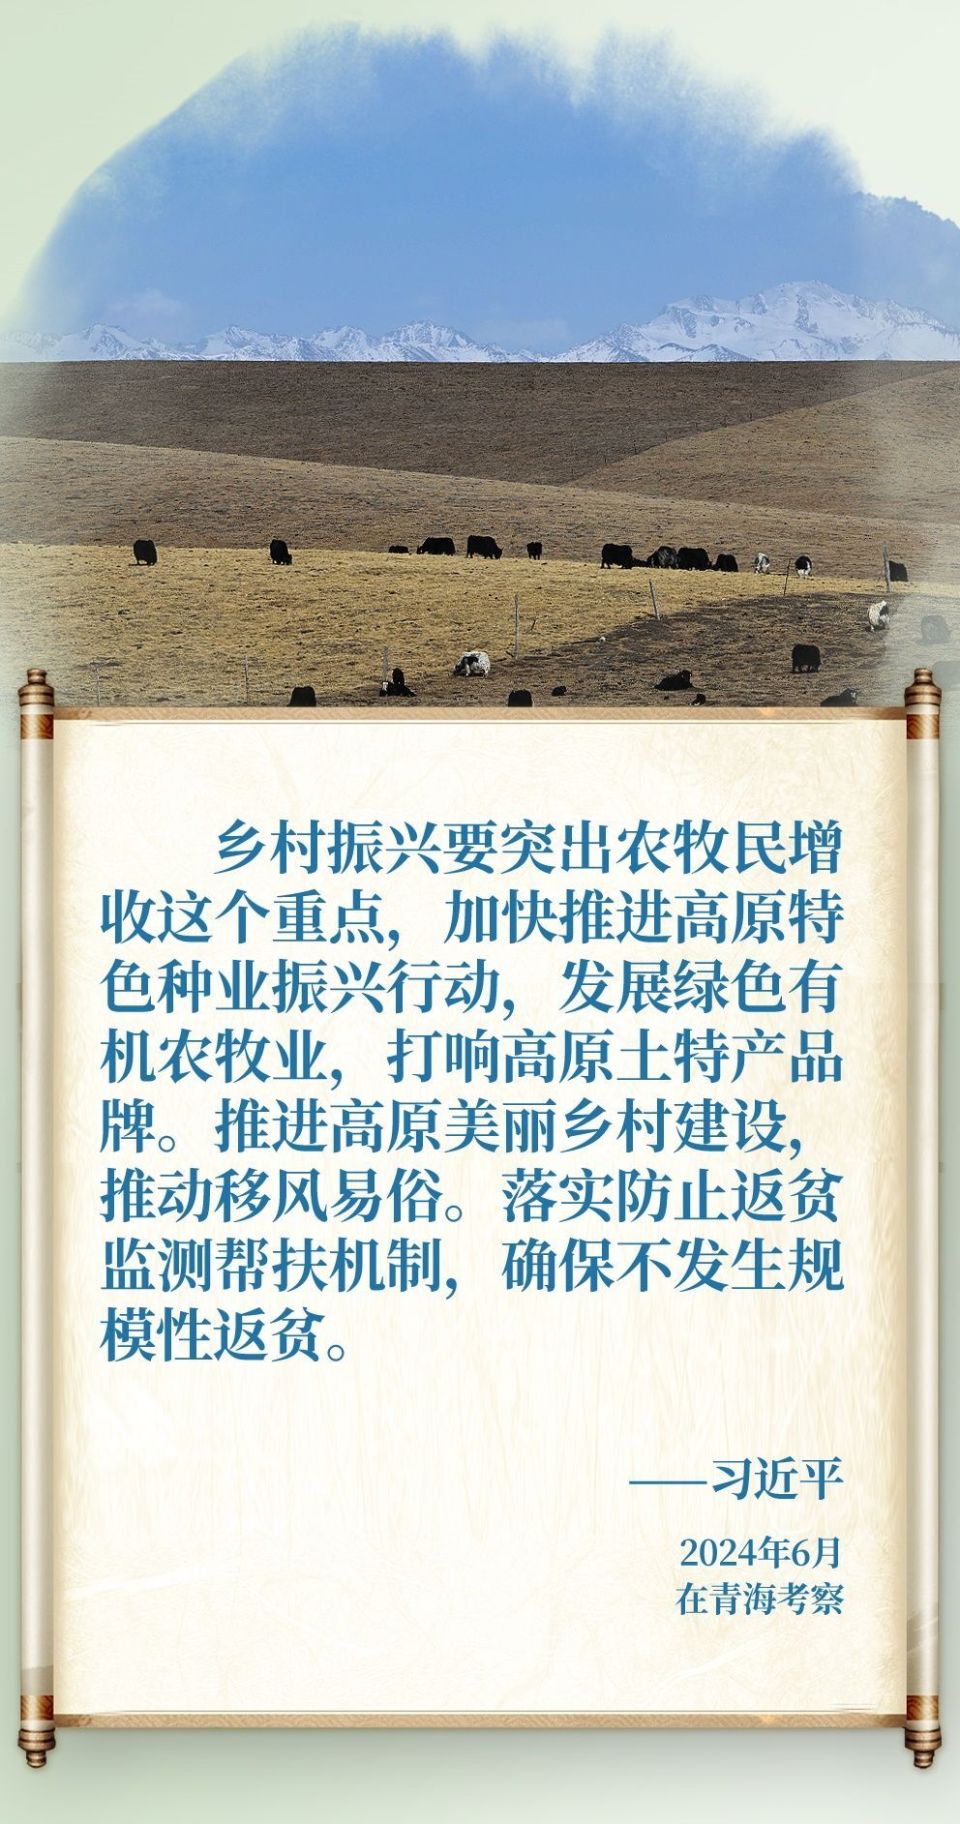 乡村振兴要突出农牧民增
收这个重点，加快推进高原特
色种业振兴行动，发展绿色有
机农牧业，打响高原土特产品
牌。推进高原美丽乡村建设，
推动移风易俗。落实防止返贫
监测帮扶机制，确保不发生规
模性返贫。
——习近平
2024年6月
在青海考察